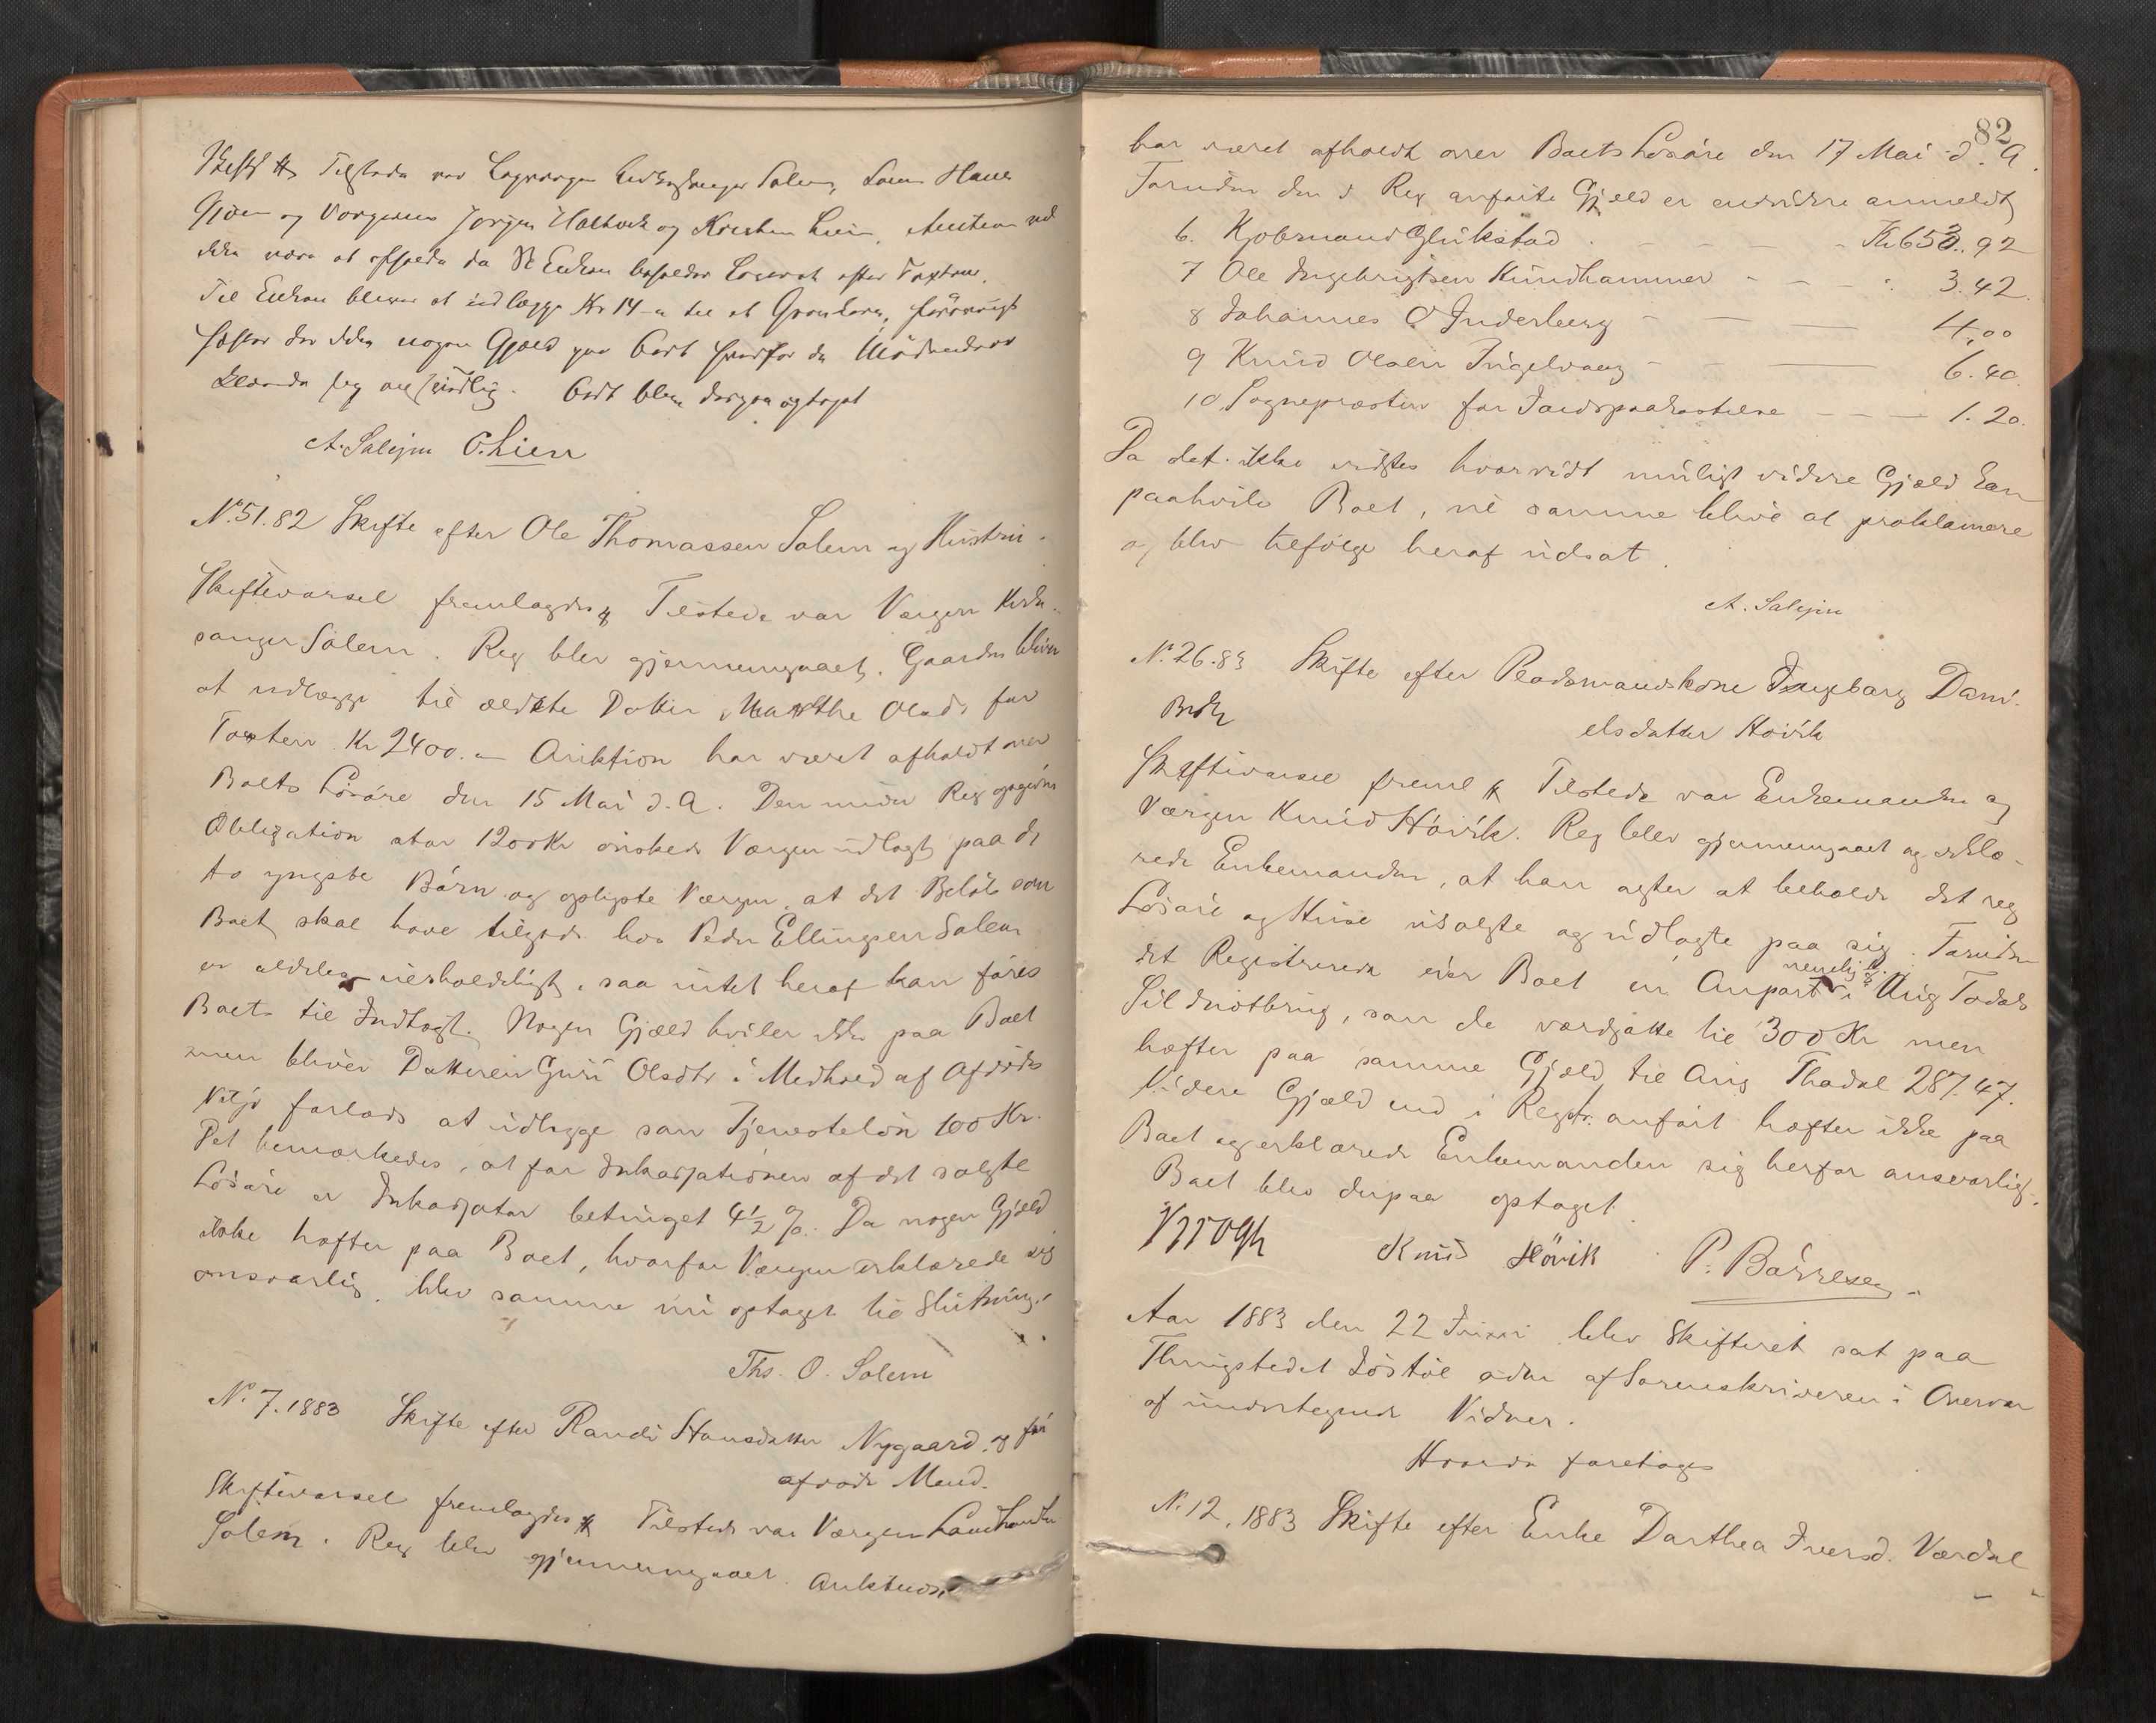 Tilstede var Lagværgen Kirkesanger Solem, Hans
Gjøen og Værgerne Jørgen Halbock og Kristen Lien. Auktion vil
ikke være at afholde da Enken beholder Løsøret efter Taxten.
Til Enken bliver at indlægge Kr 14 - til et Gravøl, forøvrigt
hefter der ikke nogen Gjæld paa Boet hvorfor de Mødende
erklærede sig ansvarlig. Boet blev derpaa optaget
A. Solem O. Lien
No. 51. 82 Skifte efter Ole Thomassen Solem og Hustru.
Skiftevarsel fremlagdes Tilstede var Værgen Kirke-
sanger Solem. Reg blev gjennemgaaet. Gaarden bliver
at udlægge til ældste Datter Marthe Olsdr for
Taxten Kr 2400. - Auktion har været afholdt over
Boets Løsøre den 15 Mai d. A. Den under Reg opgivne
Obligation stor 1200 Kr ønskede Værgen udlagt paa de
to yngste Børn og oplyste Værgen, at det Beløb som
Boet skal have tilgode hos Peder Ellingsen Solem
er aldeles uerholdeligt, saa intet heraf kan føres
Boet til Indtægt. Nogen Gjæld hviler ikke paa Boet
men bliver Datteren Guri Olsdtr i Medhold af Afdødes
Vilje forlods at udlægge som Tjenesteløn 100 Kr.
Det bemærkedes, at for Inkassationen af det solgte
Løsøre er Inkassator betinget 4½ %. Da nogen Gjæld
ikke hefter paa Boet, hvorfor Værgen erklærede sig
ansvarlig, blev samme nu optaget til Slutning.
Ths. O. Solem
No. 7. 1883 Skifte efter Randi Hansdatter Nygaard og før
afdøde Mand.
Skiftevarsel fremlagdes Tilstede var Værgen Landhandler
Solem. Reg blev gjennemgaaet. Auktion
82
har været afholdt over Boets Løsøre den 17 Mai d. A.
Foruden den i Reg anførte Gjæld er endvidere anmeldt
6. Kjøbmand Glükstad - - - - Kr 653.92
7 Ole Ingebrigtsen Kundhammer - - - - 3.42.
8 Johannes O Inderberg - - - 4,00
9 Knud Olsen Ingelvaag - - - 6.40.
10. Sognepræsten for Jordspaakastelse - - - 1.20.
Da det ikke vidstes hvorvidt muligt videre Gjæld kan
paahvile Boet, vil samme blive at proklamere
og blev tilfølge heraf udsat.
A. Solem
No. 26. 83 Skifte efter Pladsmandskone Ingeborg Dani-
elsdatter Høvik
Skiftevarsel freml Tilstede var Enkemanden og
Værgen Knud Høvik. Reg blev gjennemgaaet og erklæ-
rede Enkemanden, at han agter at beholde det reg
Løsøre og Huse usolgte og udlagte paa sig. Foruden
det Registrerede eier Boet en Anpart i Aug Todals
Sildnotbrug, som de værdsatte til 300 Kr men
hæfter paa samme Gjæld til Aug Thodal 287.47.
Videre Gjæld end i Registr. anført hæfter ikke paa
Boet og erklærede Enkemanden sig herfor ansvarlig.
Boet blev derpaa optaget.
Knud Høvik P. Børresen
Aar 1883 den 22 Juni blev Skifteret sat paa
Thingstedet af Sorenskriveren i Overvær
af undertegnede Vidner.
Hvorda foretoges
No. 12. 1883 Skifte efter Enke Dorthea Iversd. Værdal